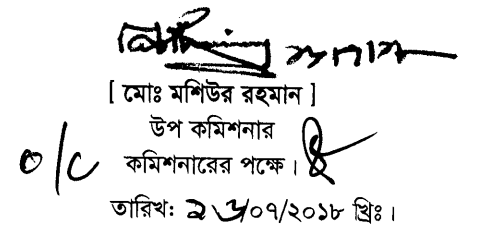 [ মোঃ মশিউর রহমান ]
উপ কমিশনার
o/c কমিশনারের পক্ষে।
তারিখ: ২৬/০৭/২০১৮ খ্রিঃ।